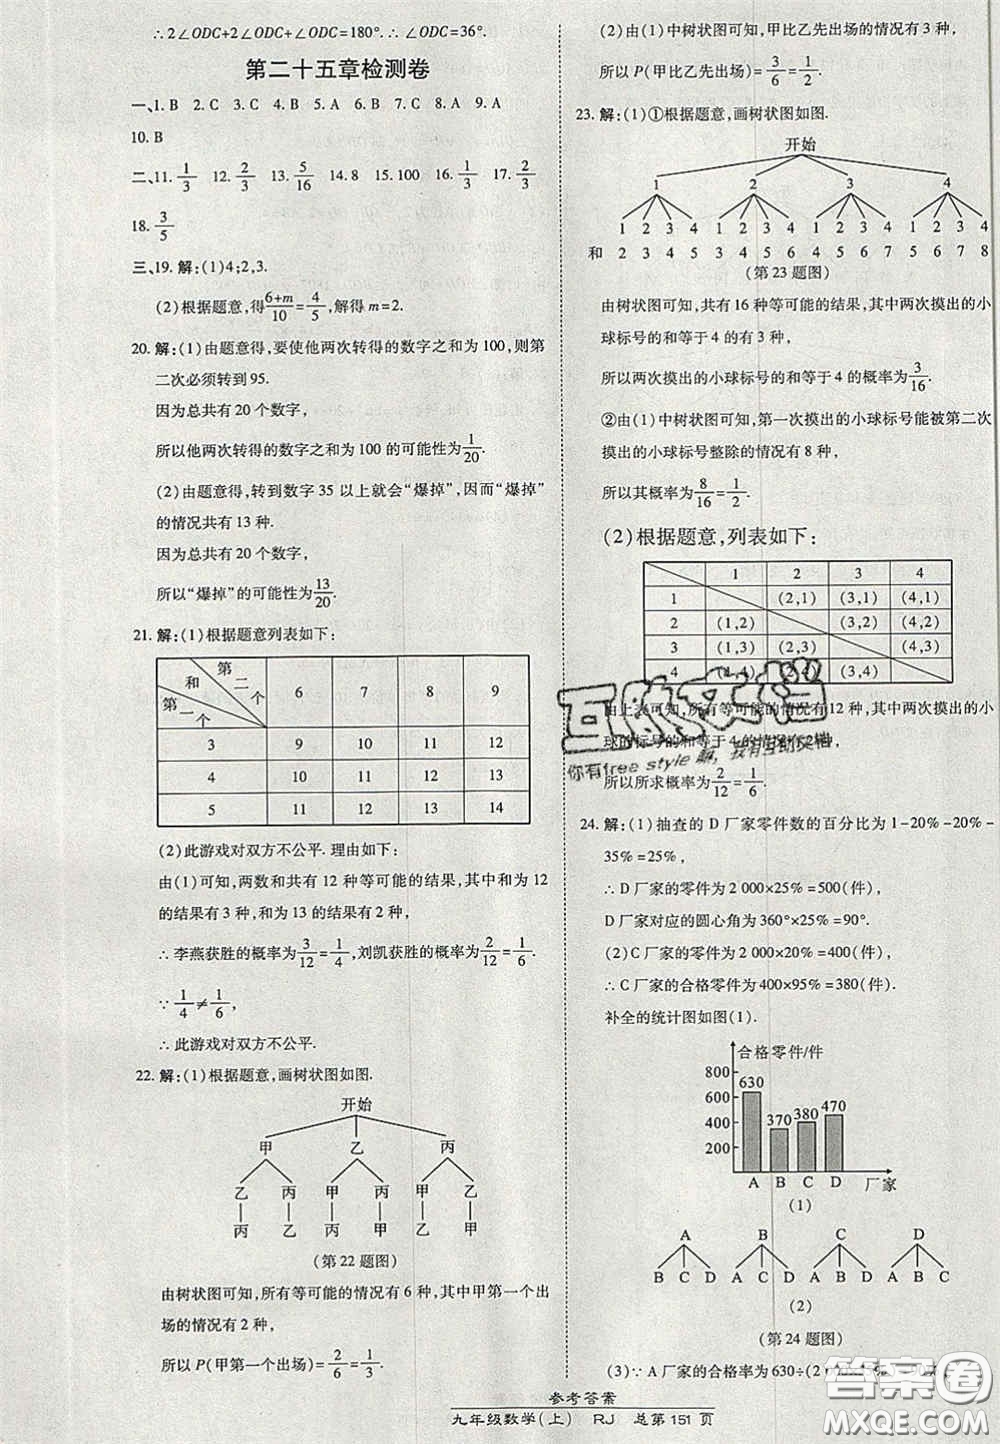 ∴ 2∠ODC+2∠ODC+∠ODC=180°. ∴ ∠ODC=36°.
第二十五章检测卷
一、1. B 2. C 3. C 4. B 5. A 6. B 7. B 8. A 9. A
10. B
二、11. 1/3 12. 2/3 13. 5/16 14. 8 15. 100 16. 1/3 17. 2/3
18. 3/5
三、19. 解:(1)4;2,3.
(2)根据题意,得(6+m)/10=4/5,解得 m=2.
20. 解:(1)由题意得,要使他两次转得的数字之和为 100,则第
二次必须转到 95.
因为总共有 20 个数字,
所以他两次转得的数字之和为 100 的可能性为1/20.
(2)由题意得,转到数字 35 以上就会“爆掉”,因而“爆掉”
的情况共有 13 种.
因为总共有 20 个数字,
所以“爆掉”的可能性为13/20.
21. 解:(1)根据题意列表如下:
第一个 和 第二个 6 7 8 9
3 9 10 11 12
4 10 11 12 13
5 11 12 13 14
(2)此游戏对双方不公平. 理由如下:
由(1)可知,两数和共有 12 种等可能的结果,其中和为 12
的结果有 3 种,和为 13 的结果有 2 种,
∴ 李燕获胜的概率为3/12=1/4,刘凯获胜的概率为2/12=1/6.
∵ 1/4≠1/6,
∴ 此游戏对双方不公平.
22. 解:(1)根据题意,画树状图如图.
开始
甲 乙 丙
乙 丙 甲 丙 甲 乙
丙 乙 丙 甲 乙 甲
(第 22 题图)
由树状图可知,所有等可能的情况有 6 种,其中甲第一个出
场的情况有 2 种,
所以 P(甲第一个出场)=2/6=1/3.
(2)由(1)中树状图可知,甲比乙先出场的情况有 3 种,
所以 P(甲比乙先出场)=3/6=1/2.
23. 解:(1)①根据题意,画树状图如图.
开始
1 2 3 4
1 2 3 4 1 2 3 4 1 2 3 4 1 2 3 4
和 2 3 4 5 3 4 5 6 4 5 6 7 5 6 7 8
(第 23 题图)
由树状图可知,共有 16 种等可能的结果,其中两次摸出的小
球标号的和等于 4 的有 3 种,
所以两次摸出的小球标号的和等于 4 的概率为3/16.
②由(1)中树状图可知,第一次摸出的小球标号能被第二次
摸出的小球标号整除的情况有 8 种,
所以其概率为8/16=1/2.
(2)根据题意,列表如下:
1 2 3 4
1 (2,1) (3,1) (4,1)
2 (1,2) (3,2) (4,2)
3 (1,3) (2,3) (4,3)
4 (3,4)
由上表可知,所有等可能的情况有 12 种,其中两次摸出的小
球的标号的和等于 4 的情况有 2 种,
所以所求概率为2/12=1/6.
互助文档
你有free style 解，我有互助文档
24. 解:(1)抽查的 D 厂家零件数的百分比为 1-20%-20%-
35%=25%,
∴ D 厂家的零件为 2 000×25%=500(件),
D 厂家对应的圆心角为 360°×25%=90°.
(2)C 厂家的零件为 2 000×20%=400(件),
∴ C 厂家的合格零件为 400×95%=380(件).
补全的统计图如图(1).
合格零件/件
800
600
400
200
630 370 380 470
A B C D 厂家
(1)
A B C D
B C D A C D A B D A B C
(2)
(第 24 题图)
(3)∵ A 厂家的合格率为 630÷(2
答案圈
MXQE.COM
参考答案
九年级数学(上) RJ 总第 151 页